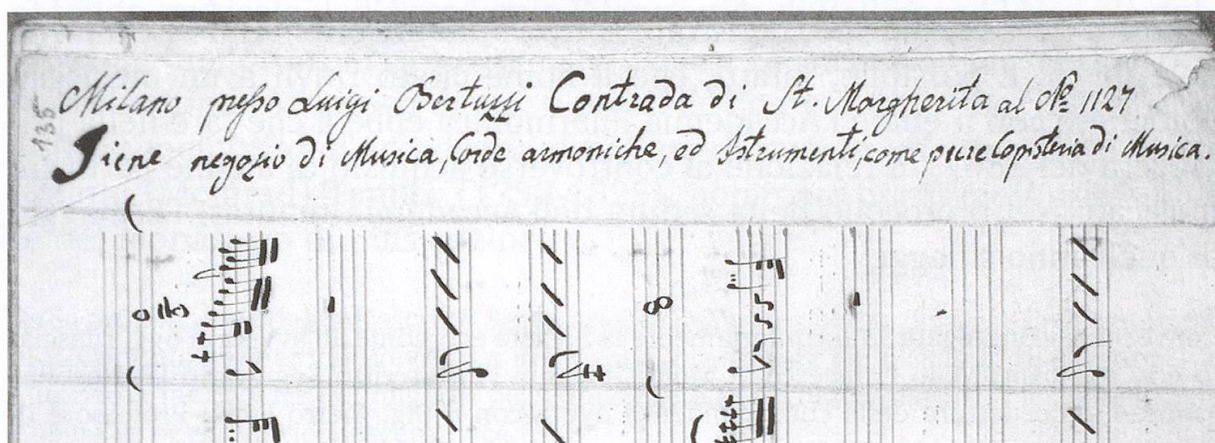 Milano presso Luigi Bertuzzi Contrada di St. Margherita al No. 1127
Tiene negozio di Musica, Corde armoniche, ed Istrumenti, come pure Copisteria di Musica.
135